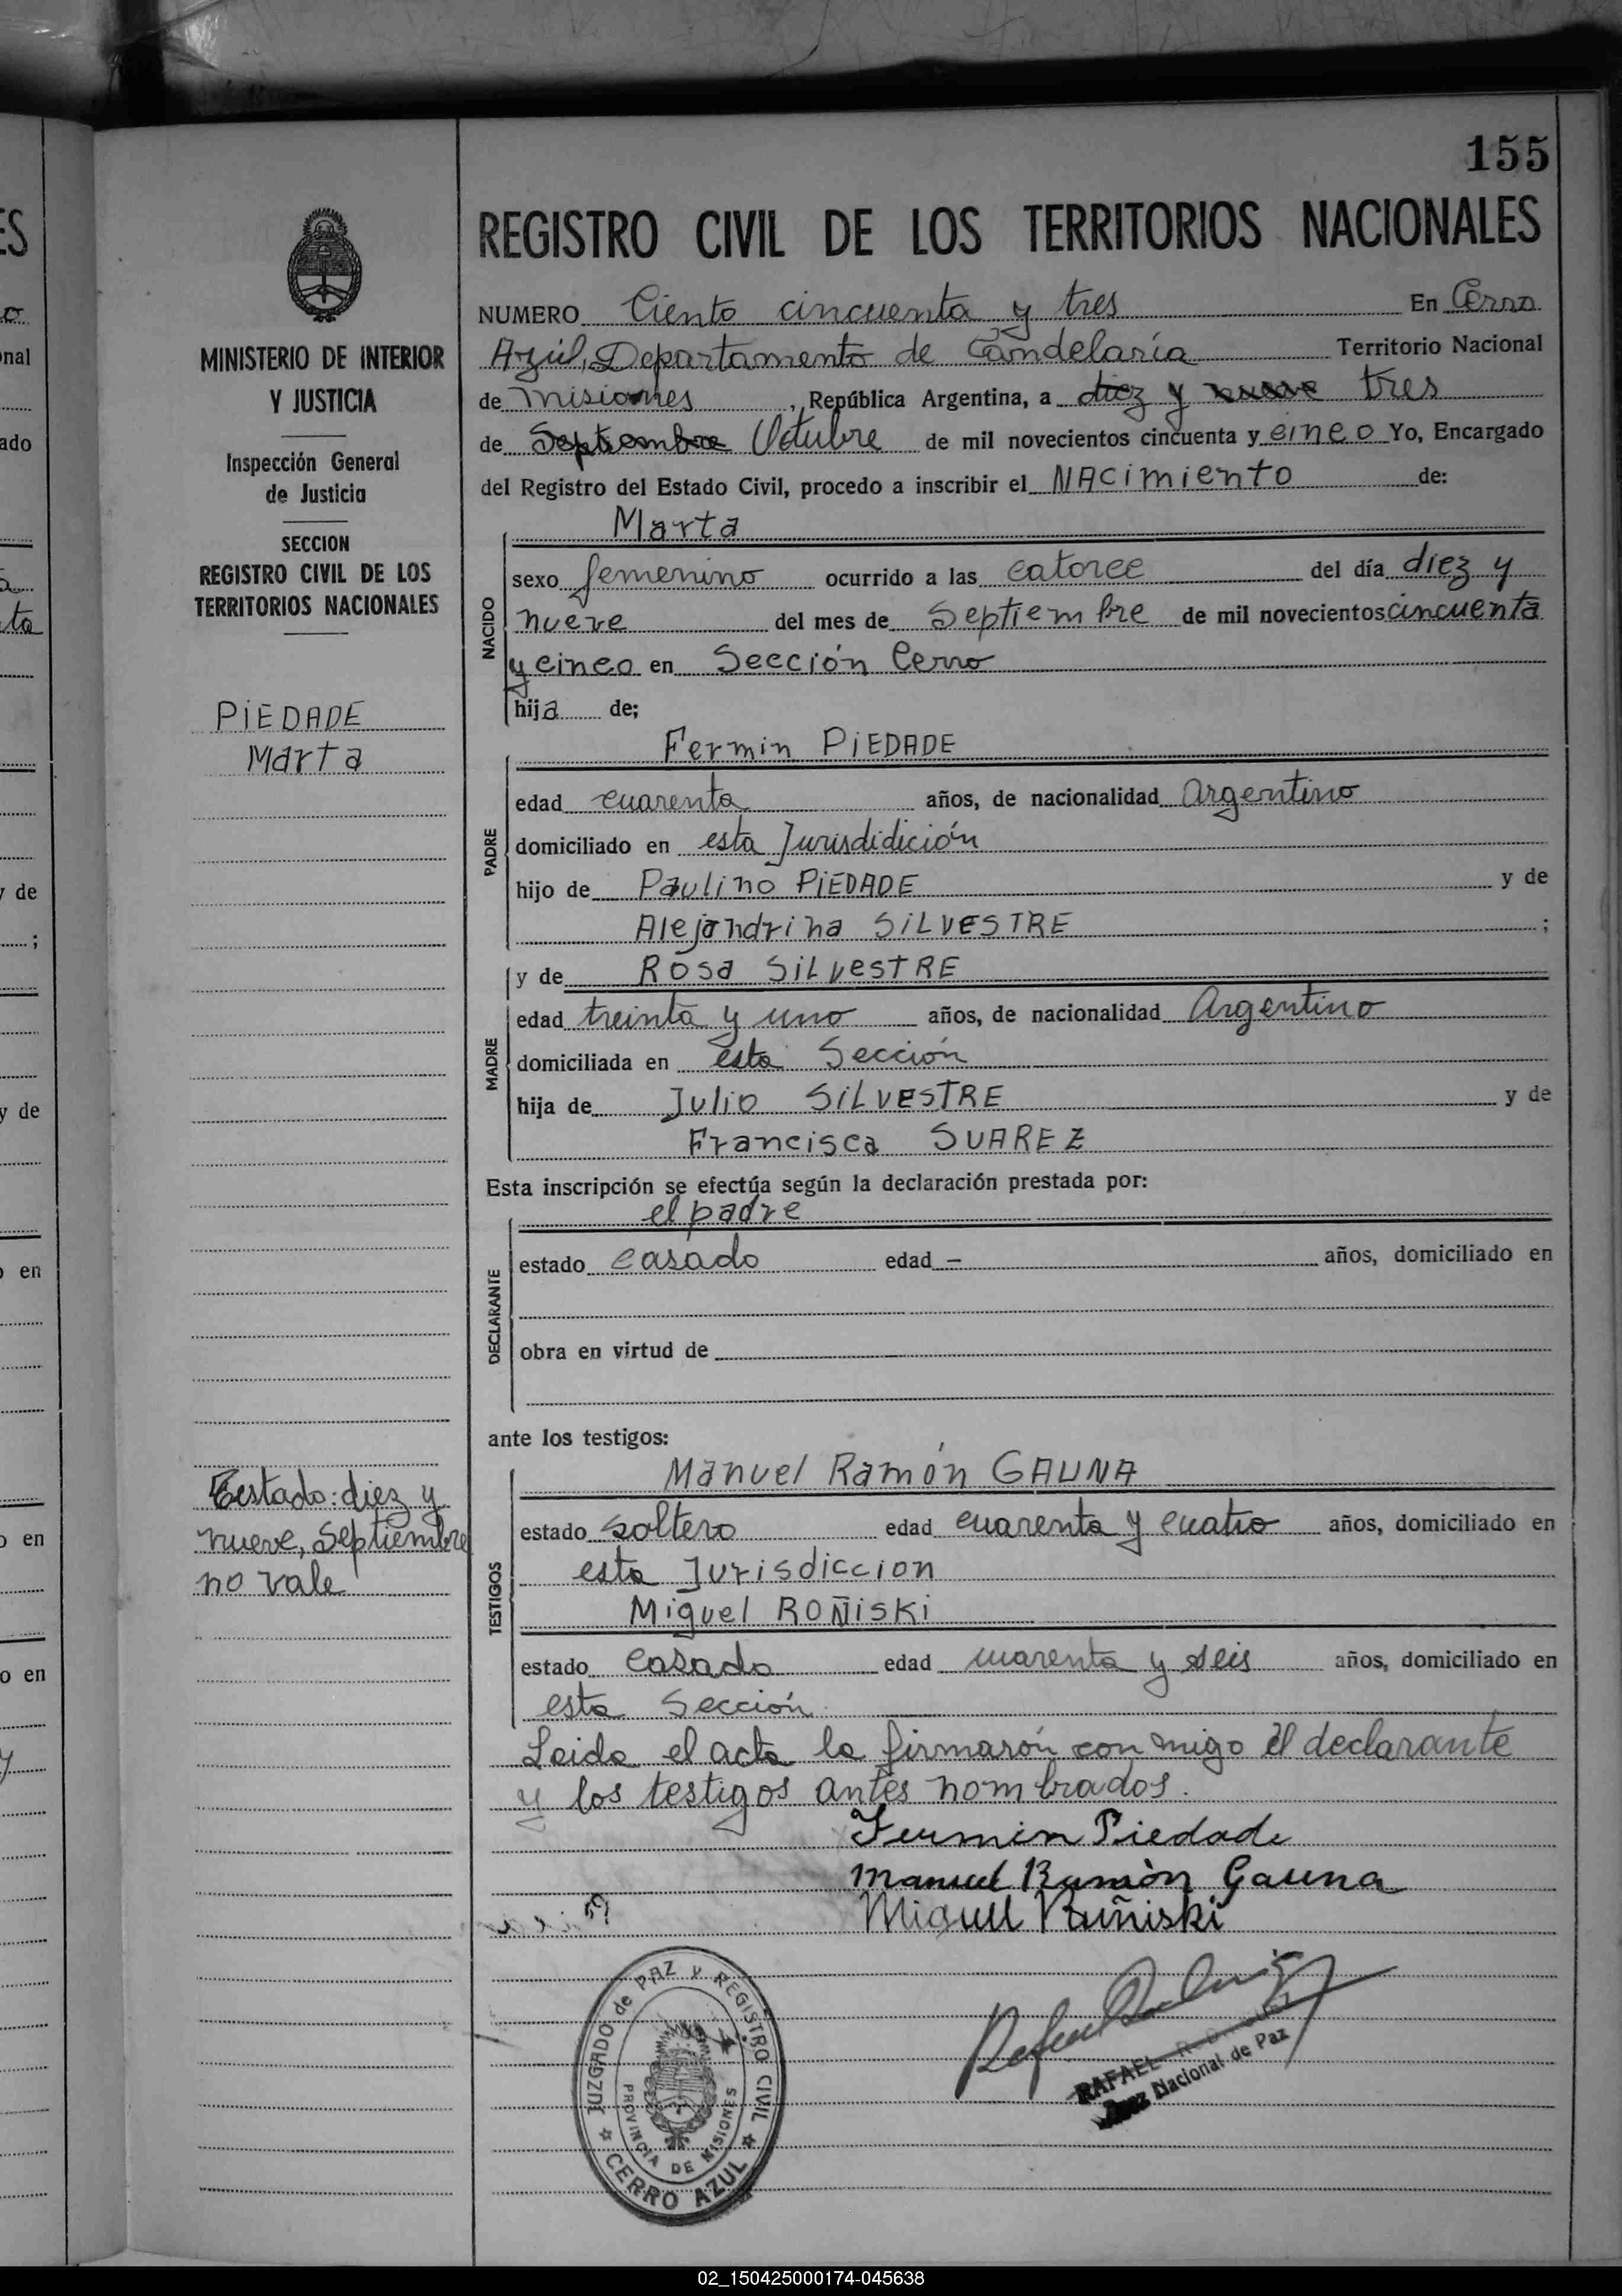 155
REGISTRO CIVIL DE LOS TERRITORIOS NACIONALES
MINISTERIO DE INTERIOR
Y JUSTICIA
Inspección General
de Justicia
SECCION
REGISTRO CIVIL DE LOS
TERRITORIOS NACIONALES
PiEDADE
Marta
Testado: diez y
nueve, Septiembre
no vale
NUMERO Ciento cincuenta y tres En Cerro
Azúl, Departamento de Candelaría Territorio Nacional
de Misiones, República Argentina, a diez y nueve tres
de Septiembre Octubre de mil novecientos cincuenta y cinco Yo, Encargado
del Registro del Estado Civil, procedo a inscribir el NACimiento de:
Marta
NACIDO
sexo femenino ocurrido a las catorce del día diez y
nueve del mes de Septiembre de mil novecientos cincuenta
y cinco en Sección Cerro
hija de;
Fermin PiEDADE
PADRE
edad cuarenta años, de nacionalidad Argentino
domiciliado en esta Jurisdidición
hijo de Paulino PiEDADE y de
Alejandrina SiLVESTRE ;
y de Rosa SiLVESTRE
MADRE
edad treinta y uno años, de nacionalidad Argentino
domiciliada en esta Sección
hija de Julio SiLVESTRE y de
Francisca SUAREZ
Esta inscripción se efectúa según la declaración prestada por:
el padre
DECLARANTE
estado casado edad - años, domiciliado en
obra en virtud de
ante los testigos:
Manuel Ramón GAUNA
TESTIGOS
estado soltero edad cuarenta y cuatro años, domiciliado en
esta Jurisdiccion
Miguel ROÑiSKi
estado casado edad cuarenta y seis años, domiciliado en
esta Sección
Leida el acta la firmarón con migo el declarante
y los testigos antes nombrados.
Fermin Piedade
Manuel Ramón Gauna
Miguel Ruñiski
JUZGADO de PAZ y REGISTRO CIVIL
PROVINCIA DE MISIONES
CERRO AZUL
RAFAEL
Juez Nacional de Paz
02_150425000174-045638